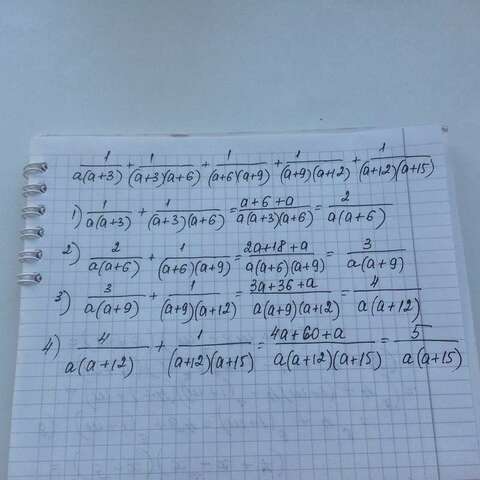 1/(a(a+3)) + 1/((a+3)(a+6)) + 1/((a+6)(a+9)) + 1/((a+9)(a+12)) + 1/((a+12)(a+15))
1) 1/(a(a+3)) + 1/((a+3)(a+6)) = (a+6+a)/(a(a+3)(a+6)) = 2/(a(a+6))
2) 2/(a(a+6)) + 1/((a+6)(a+9)) = (2a+18+a)/(a(a+6)(a+9)) = 3/(a(a+9))
3) 3/(a(a+9)) + 1/((a+9)(a+12)) = (3a+36+a)/(a(a+9)(a+12)) = 4/(a(a+12))
4) 4/(a(a+12)) + 1/((a+12)(a+15)) = (4a+60+a)/(a(a+12)(a+15)) = 5/(a(a+15))